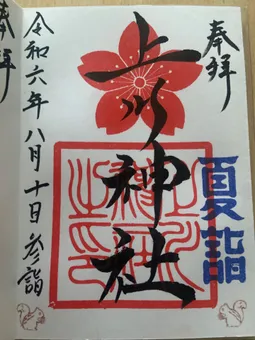 奉拝
夏詣
上川神社
令和六年八月十日参詣
奉拝